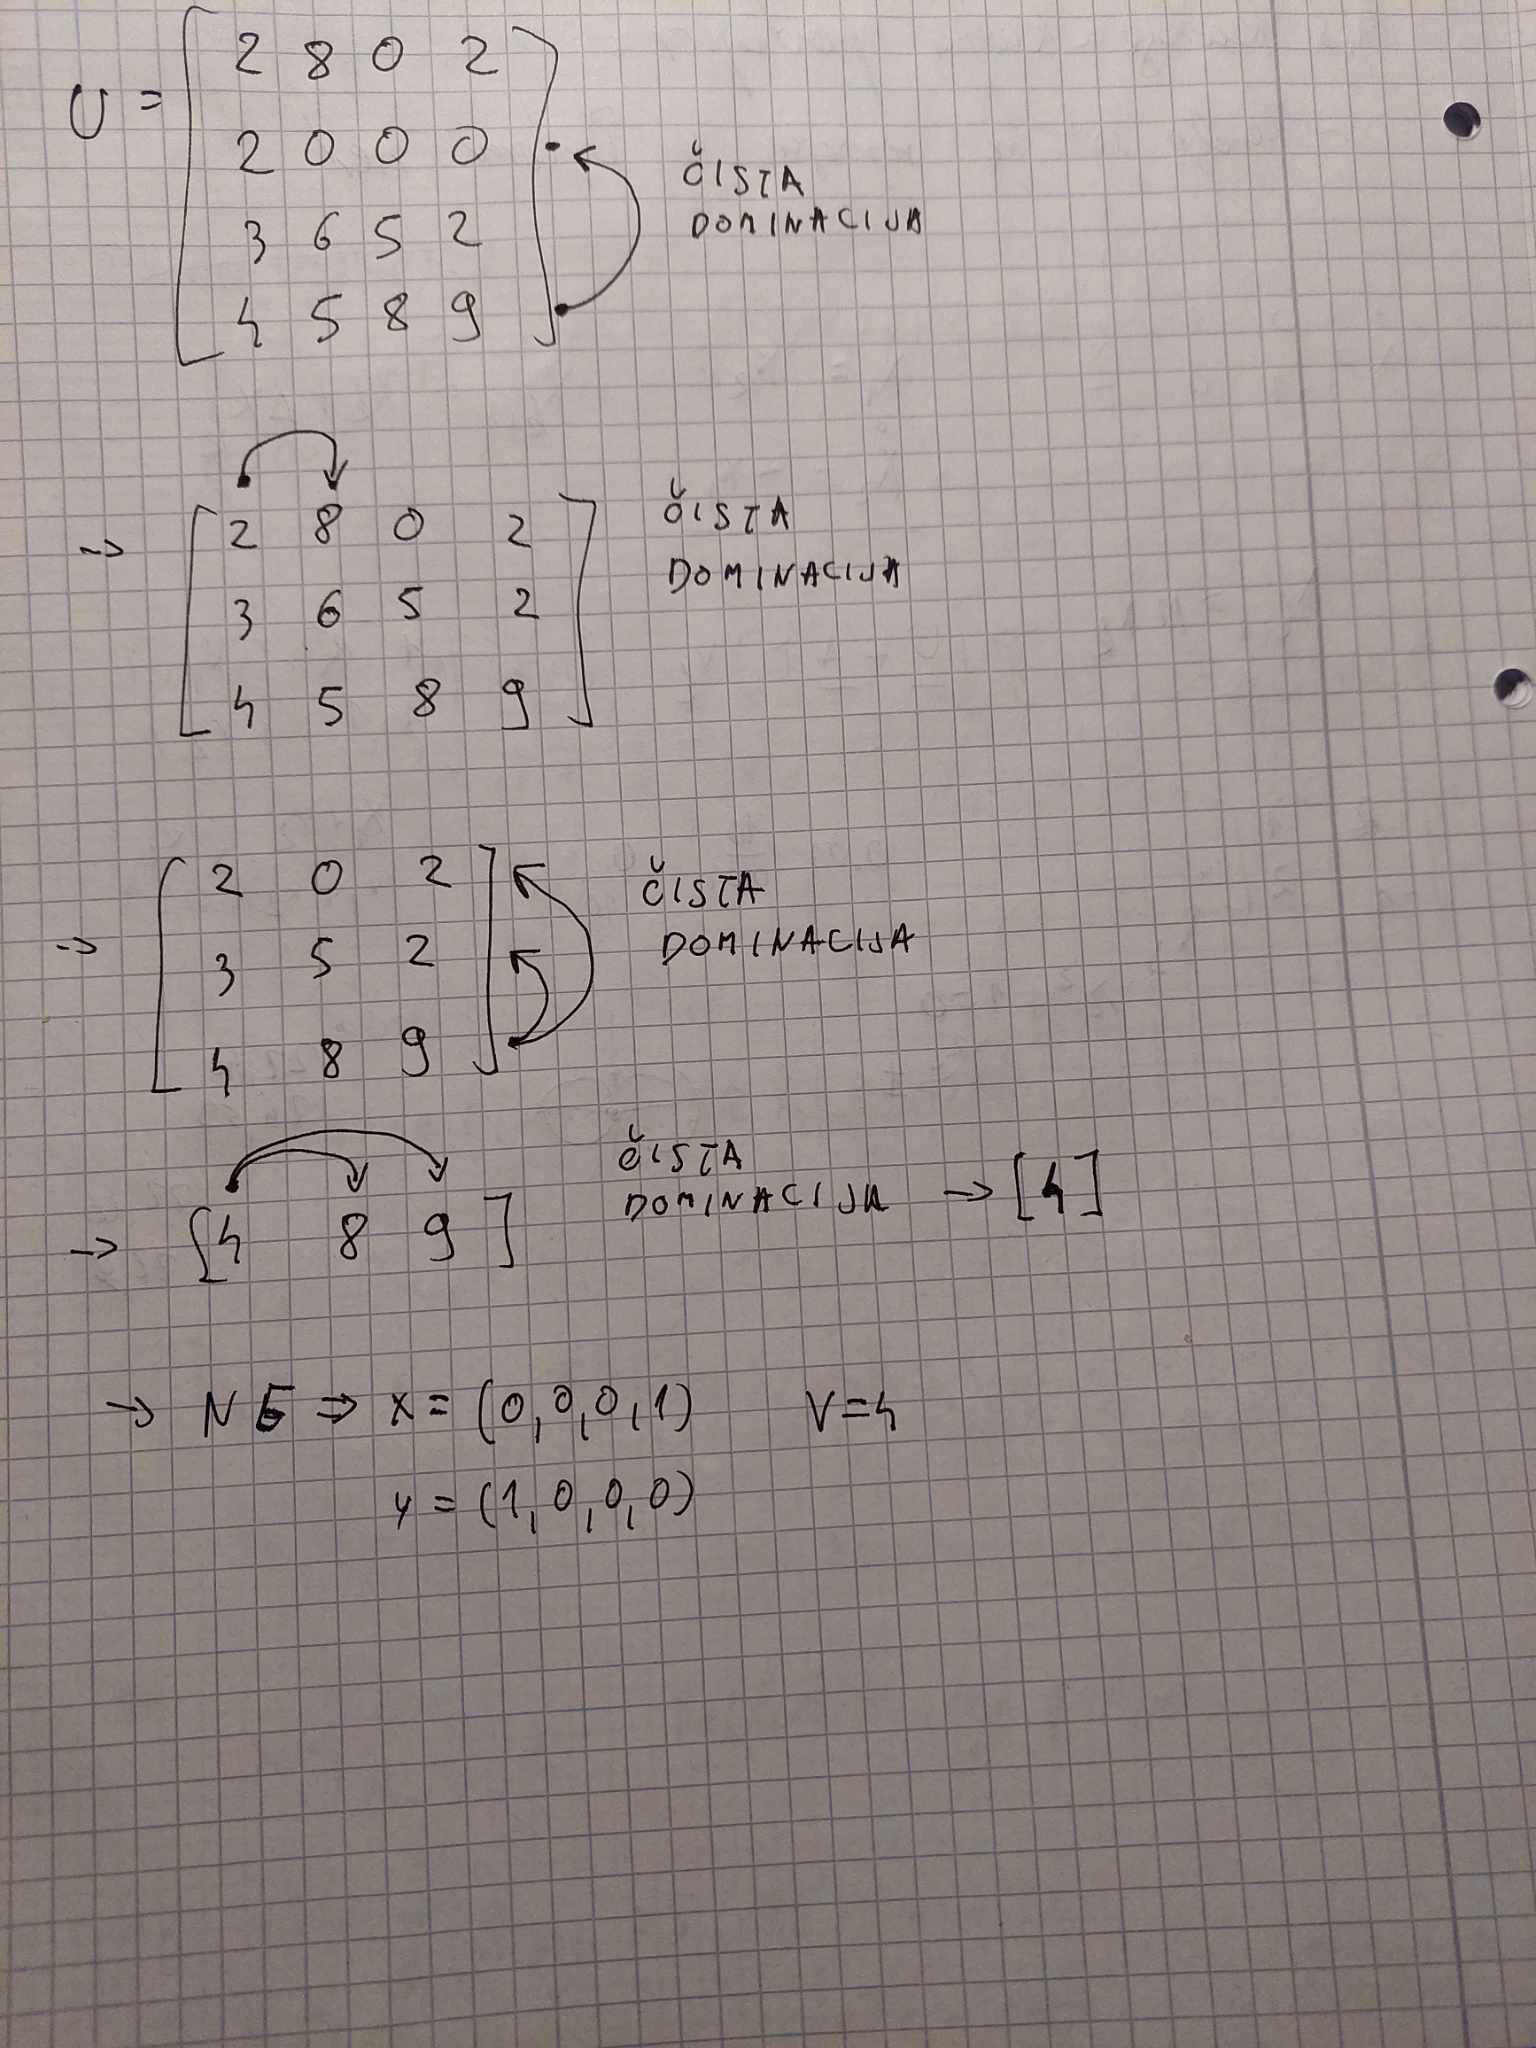 U = [ 2 8 0 2
2 0 0 0
3 6 5 2
4 5 8 9 ]
ČISTA
DOMINACIJA
-> [ 2 8 0 2
3 6 5 2
4 5 8 9 ]
ČISTA
DOMINACIJA
-> [ 2 0 2
3 5 2
4 8 9 ]
ČISTA
DOMINACIJA
-> [4 8 9]
ČISTA
DOMINACIJA -> [4]
-> NE => x = (0,0,0,1) V=4
y = (1,0,0,0)